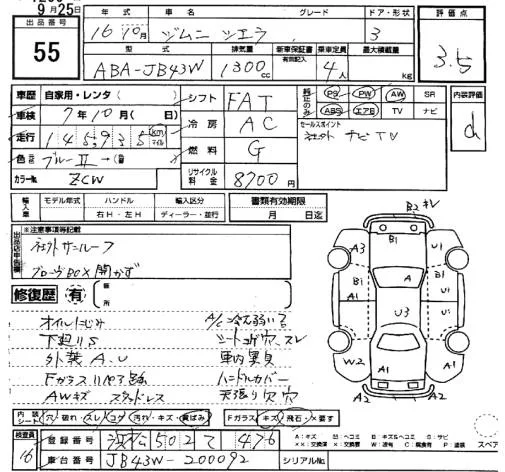 9月25日
年式 車名 グレード ドア・形状 評価点
出品番号
16年10月 ジムニー シエラ 3
55
型式 排気量 新車保証書 有田記入 乗車定員 最大積載量
ABA-JB43W 1300cc 4人 kg
3.5
車歴 自家用・レンタ( ) シフト FAT 純正のみ PS PW AW SR 内装評価
車検 7年10月( 日) ABS エアB TV ナビ
冷房 AC セールスポイント
走行 145,935 km マイル 社外 ナビTV d
燃料 G
色 ブルーII→( )
カラーNo. ZCW リサイクル料金 8700円
輸入車 モデル年式 ハンドル 輸入区分 書類有効期限
右H・左H ディーラー・並行 月 日迄
出品店申告欄 ※注意事項等記載
社外サンルーフ
グローブBOX開かず
修復歴 有 箇所
オイルにじみ A/C冷え弱いる
下廻りS シートコゲ穴スレ
外装A.U 車内異臭
Fガラスリペア跡 ハンドルカバー
AWキズ スタッドレス 天張り穴
B2 キV
B1 U1
A3 B1 A1 A U3 U1 A1
W2 A1 A1
A2 A2
内装シート 穴・破れ・スレ・コゲ・汚れ・キズ・黄ばみ Fガラス キズ・飛石・×要す
検査員 16
登録番号 浜松502て476
車台番号 JB43W-200092 シリアルNo.
A:キズ U:ヘコミ B:キズ&ヘコミ S:サビ
××:交換済 ×:要交換 W:波有 C:腐食有 P:塗装
スペア